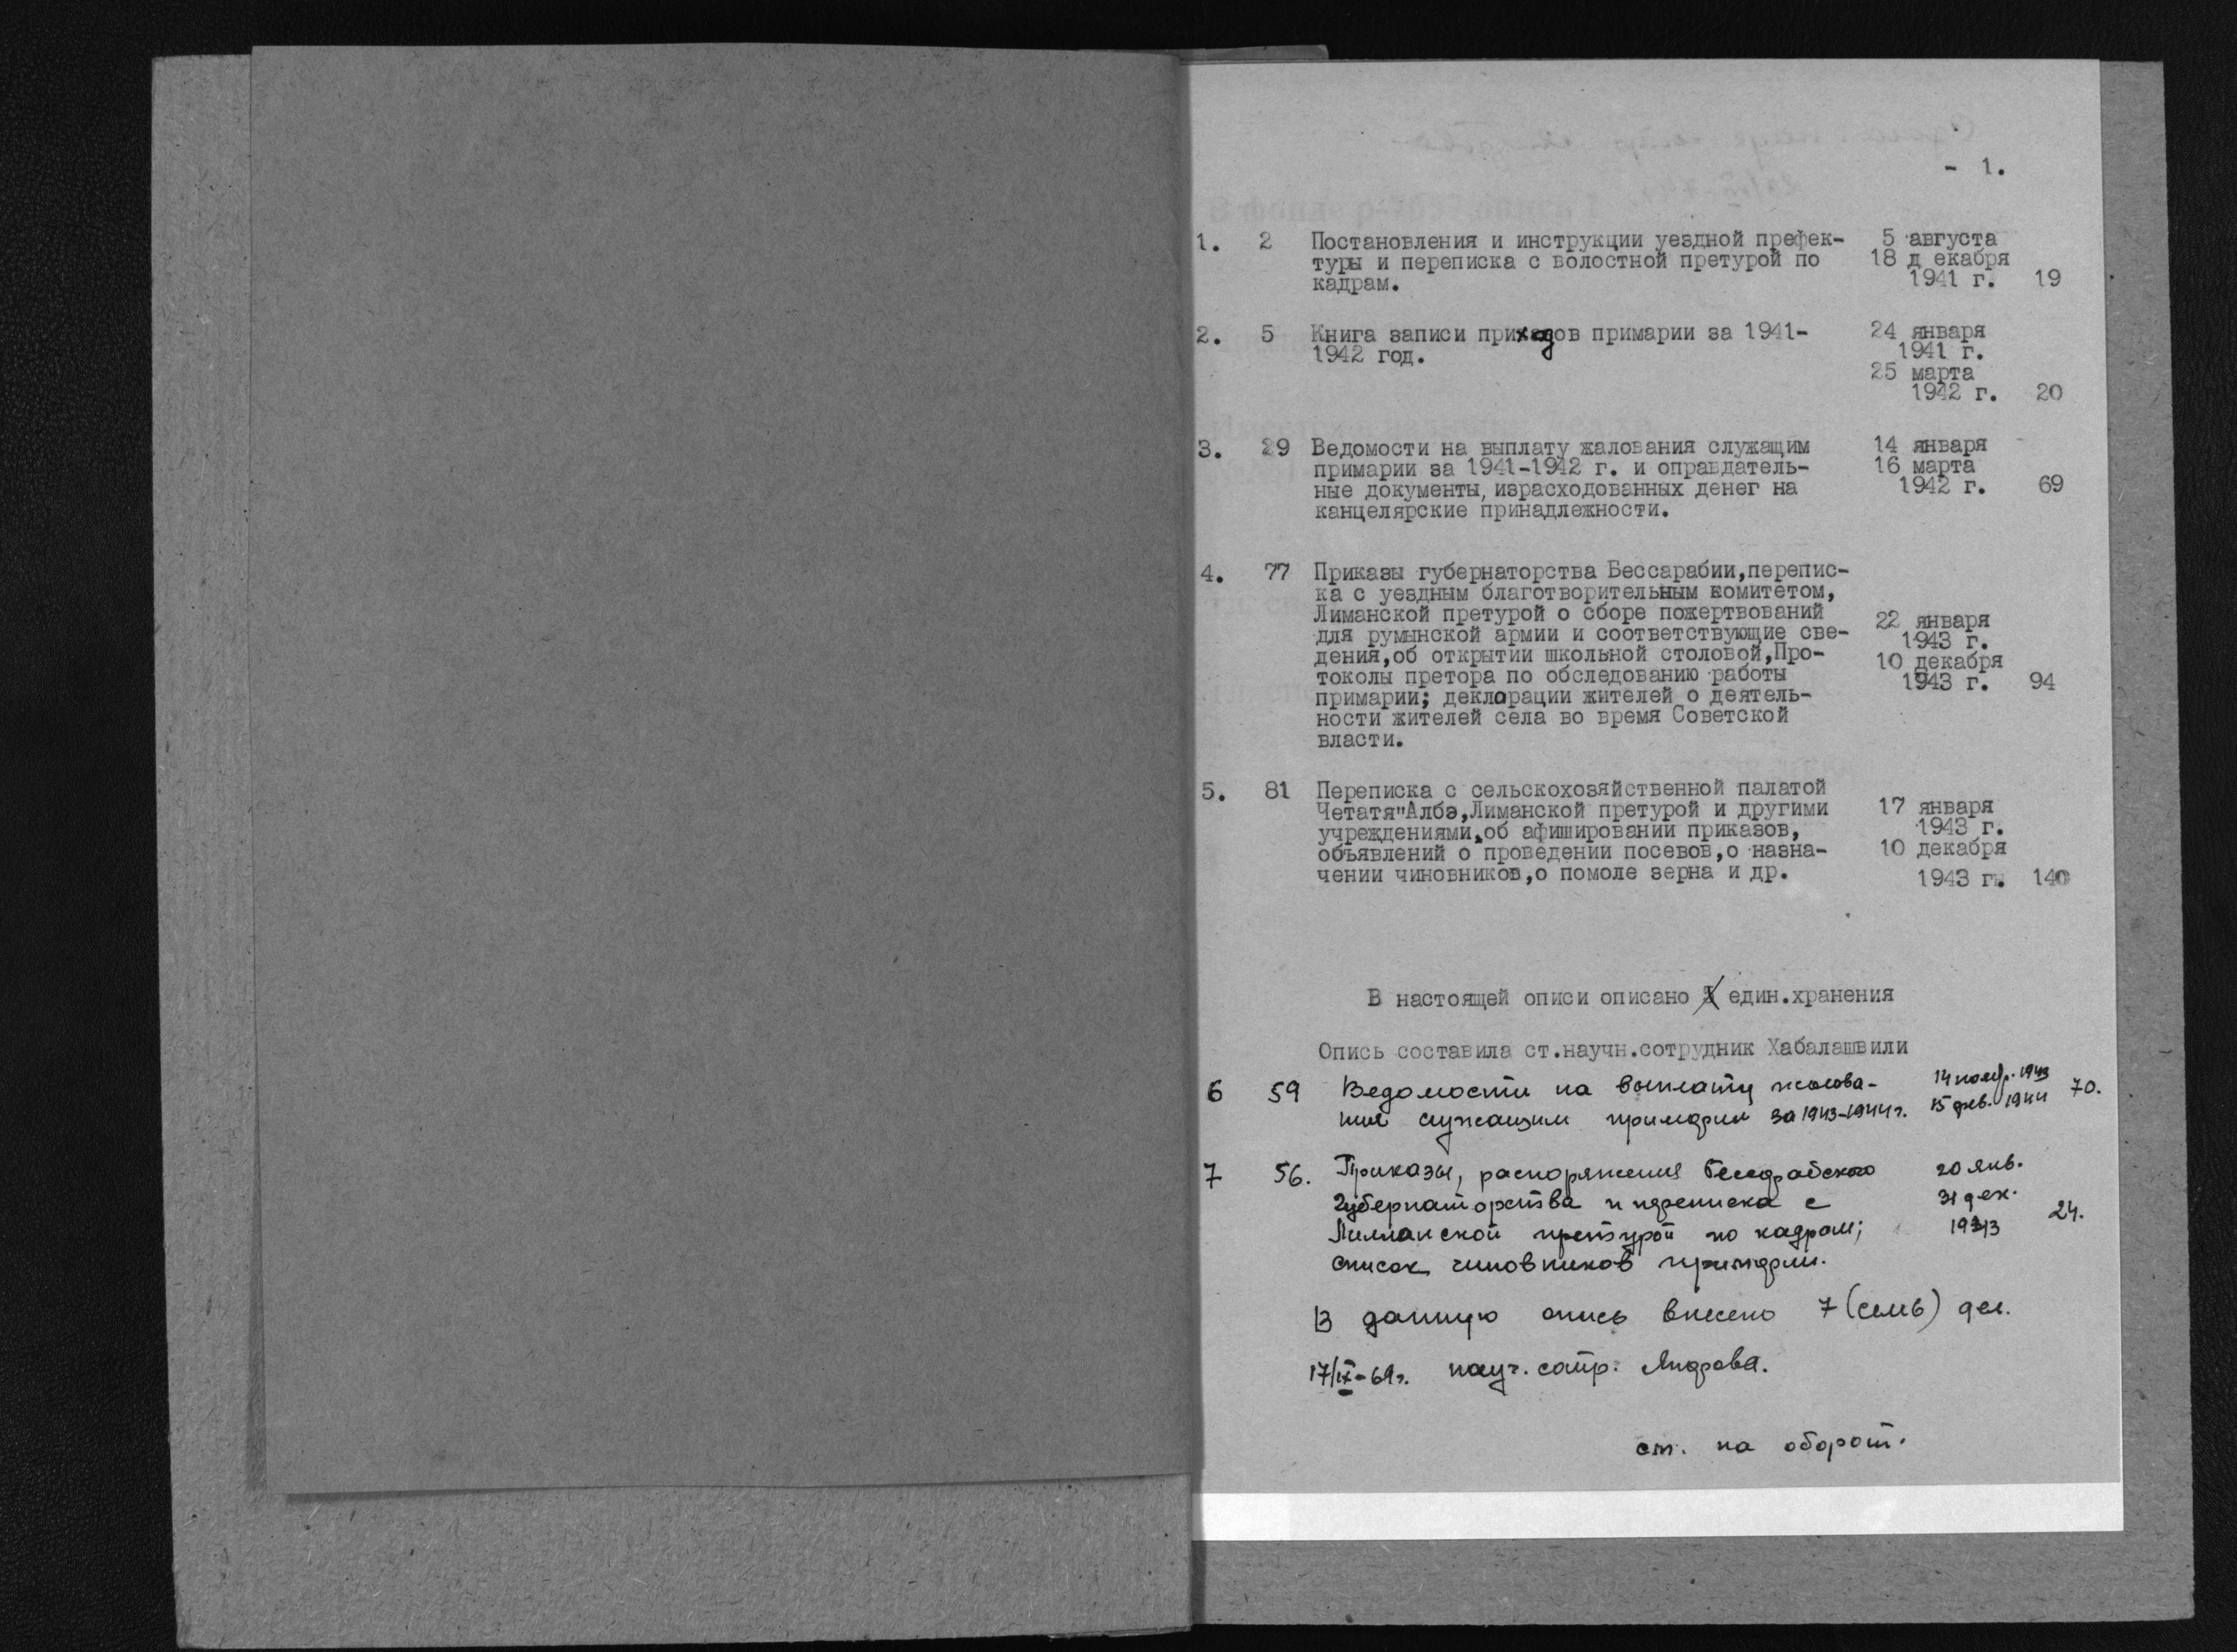 - 1.
1. 2 Постановления и инструкции уездной префек- 5 августа
туры и переписка с волостной претурой по 18 д екабря
кадрам. 1941 г. 19
2. 5 Книга записи приходов примарии за 1941- 24 января
1942 год. 1941 г.
25 марта
1942 г. 20
3. 29 Ведомости на выплату жалования служащим 14 января
примарии за 1941-1942 г. и оправдатель- 16 марта
ные документы, израсходованных денег на 1942 г. 69
канцелярские принадлежности.
4. 77 Приказы губернаторства Бессарабии,перепис-
ка с уездным благотворительным комитетом,
Лиманской претурой о сборе пожертвований
для румынской армии и соответствующие све- 22 января
1943 г.
дения,об открытии школьной столовой,Про- 10 декабря
токолы претора по обследованию работы 1943 г. 94
примарии; декларации жителей о деятель-
ности жителей села во время Советской
власти.
5. 81 Переписка с сельскохозяйственной палатой
Четатя"Албэ,Лиманской претурой и другими 17 января
учреждениями,об афишировании приказов, 1943 г.
объявлений о проведении посевов,о назна- 10 декабря
чении чиновников,о помоле зерна и др. 1943 г. 140
В настоящей описи описано един.хранения
Опись составила ст.научн.сотрудник Хабалашвили
6 59 Ведомости на выплату жалова- 14 ноябр. 1943 70.
ния служащим примарии за 1943-1944 г. 15 фев. 1944
7 56. Приказы, распоряжения Бессарабского 20 янв.
губернаторства и переписка с 31 дек.
Лиманской претурой по кадрам; 1943 24.
список чиновников примарии.
В данную опись внесено 7 (семь) дел.
17/IX-69г. науч. сотр.
см. на оборот.